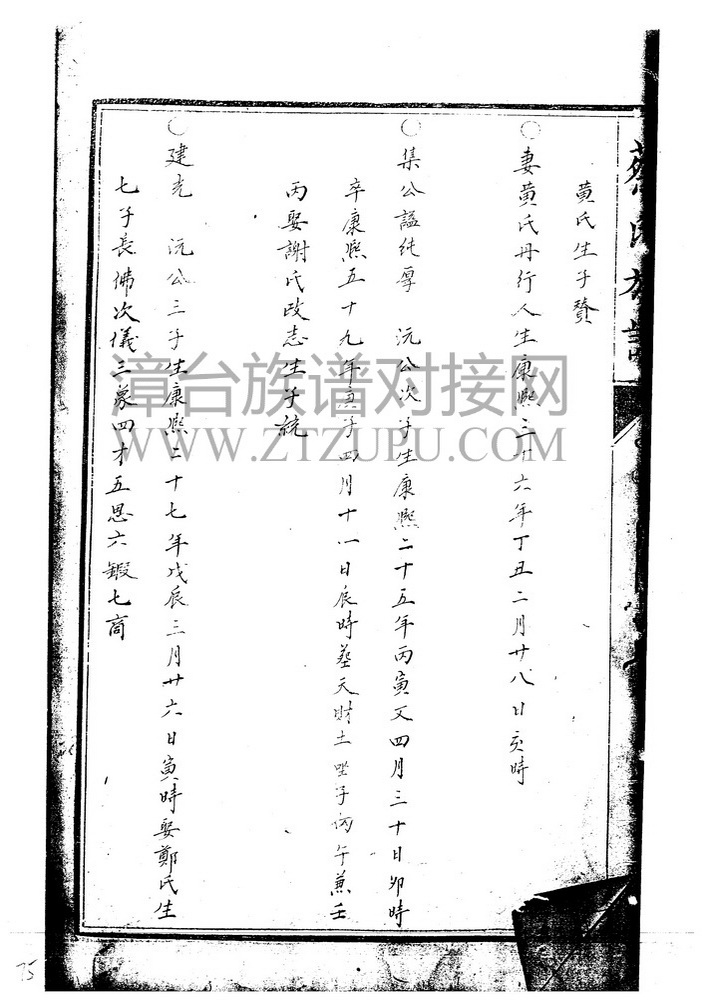 蔡氏族譜
黄氏生子贊
○妻黄氏丹行人生康熙三十六年丁丑二月廿八日亥時
○集公謚純厚 沅公次子生康熙二十五年丙寅又四月三十日卯時
卒康熙五十九年庚子四月十一日辰時葬天財土坐子向午兼壬
丙娶謝氏政志生子統
○建光 沅公三子生康熙二十七年戊辰三月廿六日寅時娶鄭氏生
七子長佛次儀三象四才五恩六鍛七商
漳台族谱对接网
WWW.ZTZUPU.COM
75